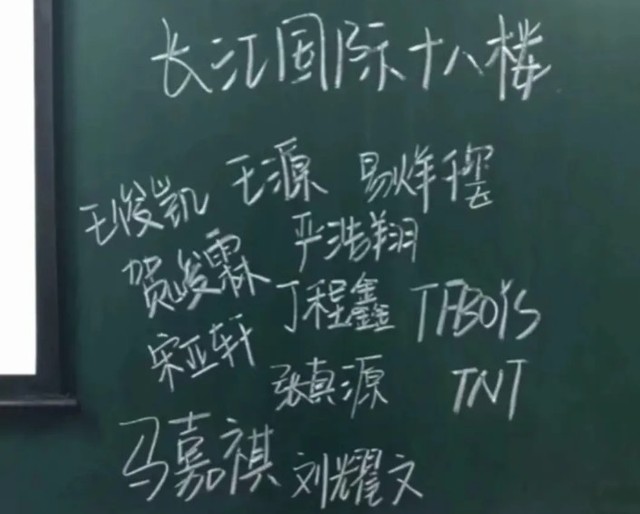 长江国际十八楼
王俊凯 王源 易烊千玺
贺峻霖 严浩翔
丁程鑫 TFBOYS
宋亚轩
张真源 TNT
马嘉祺 刘耀文